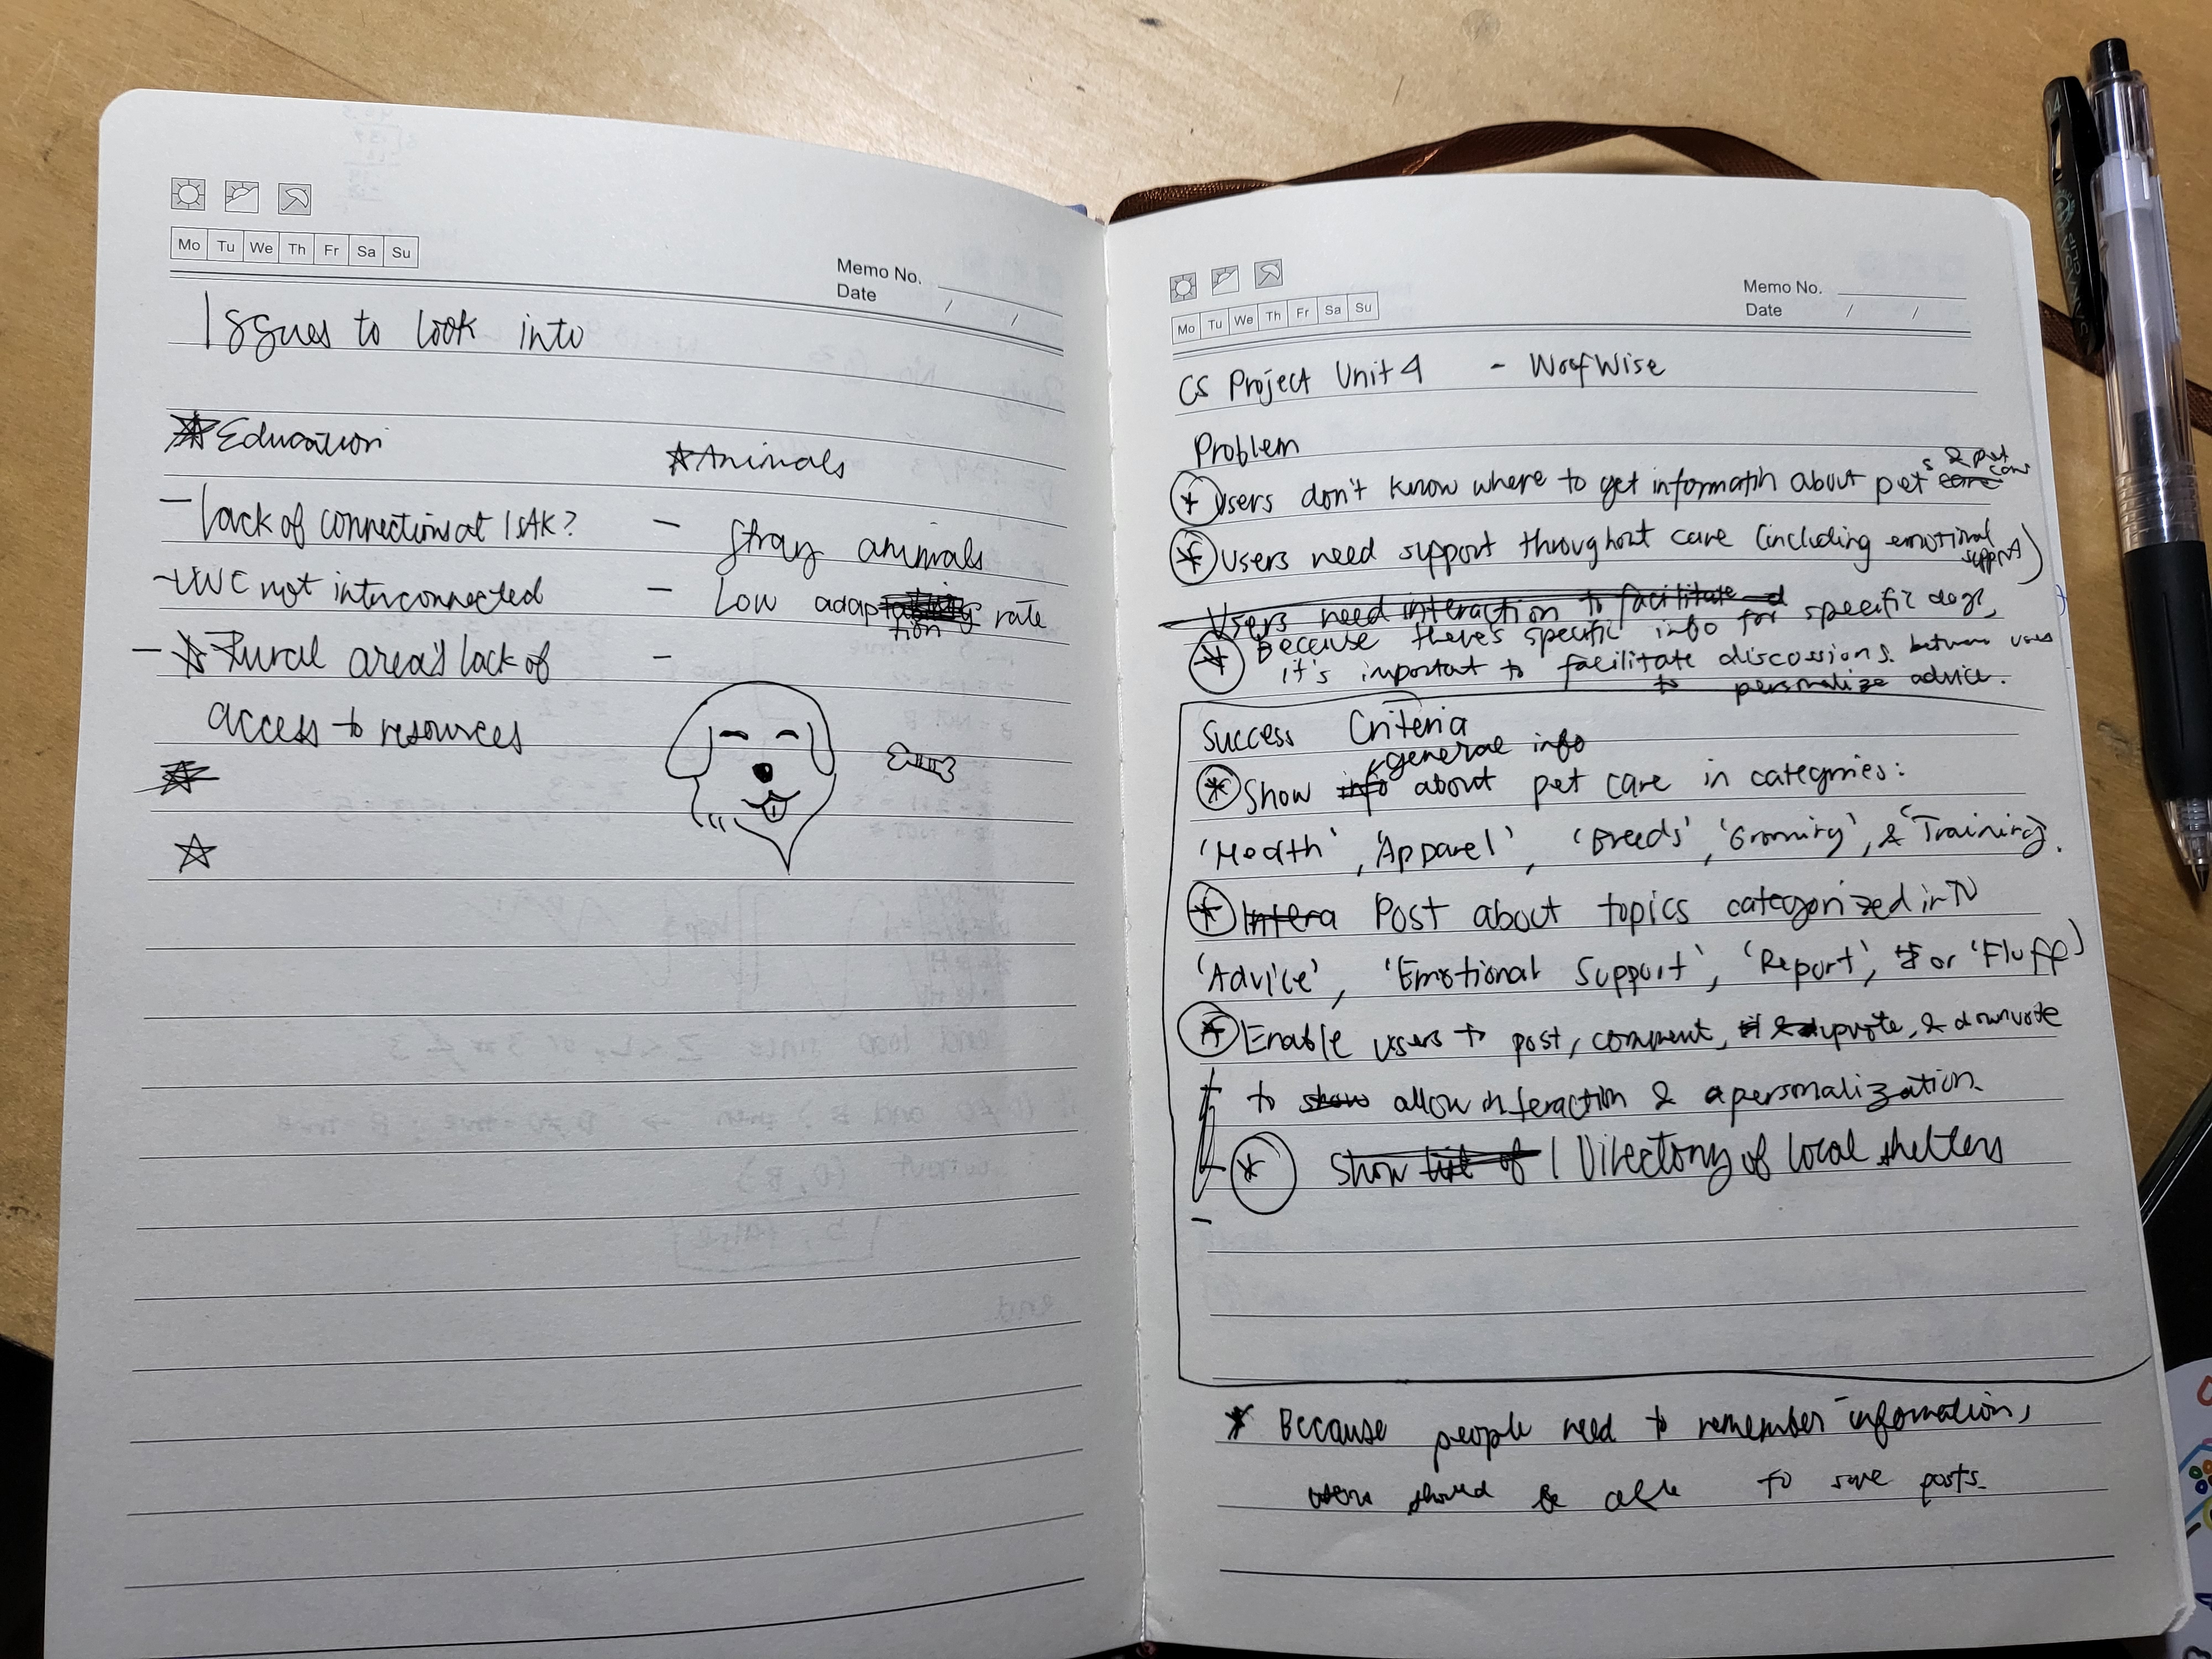 Mo Tu We Th Fr Sa Su
Memo No.
Date / /
Issues to look into
Education
- lack of connections at ISAK?
- UWC not interconnected
- Rural area's lack of
access to resources
Animals
- Stray animals
- Low adaption rate
-
Mo Tu We Th Fr Sa Su
Memo No.
Date / /
CS Project Unit 4 - WoofWise
Problem
* Users don't know where to get information about pets & pet care
* Users need support throughout care (including emotional support)
Users need interaction to facilitate
* Because there's specific info for specific dogs,
it's important to facilitate discussions between users
to personalize advice.
Success Criteria
* Show general info about pet care in categories:
'Health', 'Apparel', 'Breeds', 'Grooming', & 'Training'.
* Post about topics categorized into
'Advice', 'Emotional Support', 'Report', or 'Fluff'
* Enable users to post, comment, upvote, & downvote
to allow interaction & personalization.
* Show list of Directory of local shelters
-
* Because people need to remember information,
users should be able to save posts.